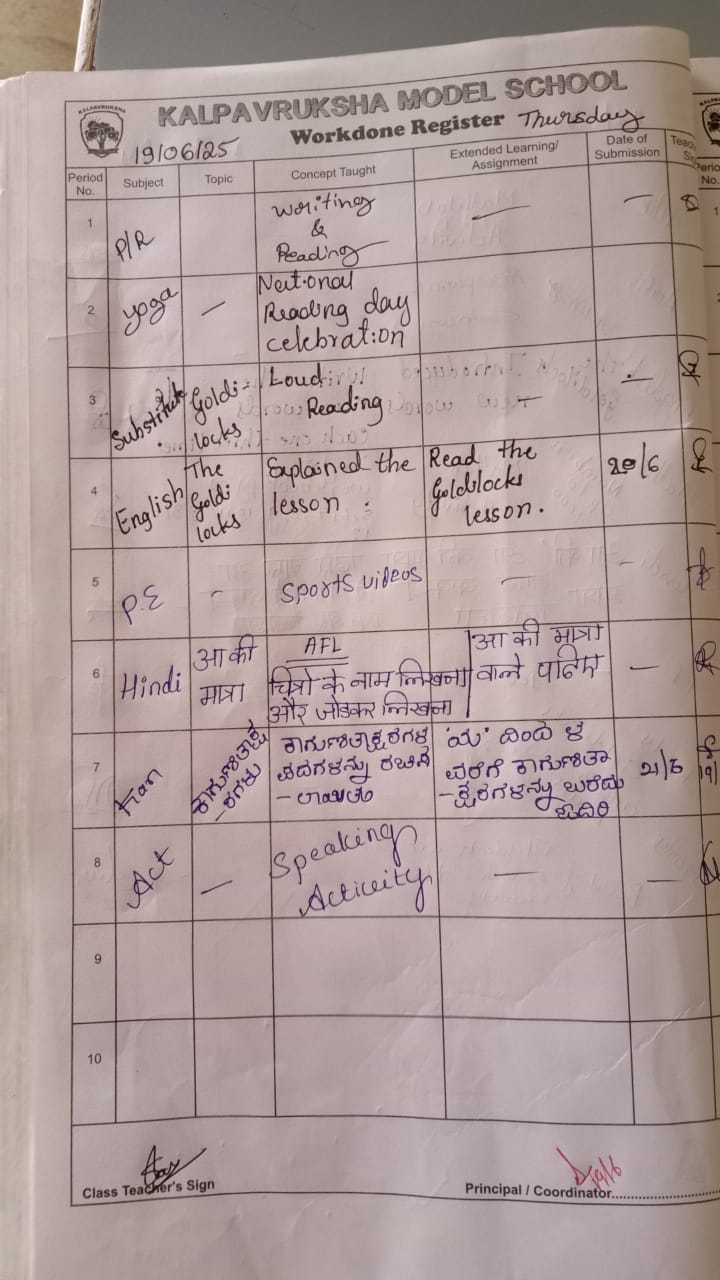 KALPAVRUKSHA
KALPAVRUKSHA MODEL SCHOOL
Workdone Register Thursday
19/06/25
Period No. Subject Topic Concept Taught Extended Learning/ Assignment Date of Submission
1 P/R Writing
&
Reading — —
2 Yoga — National
Reading day
celebration
3 Substitute Goldi-
locks Loud
Reading — —
4 English The
Goldi
locks Explained the
lesson. Read the
Goldilocks
lesson. 20/6
5 P.E - Sports videos — -
6 Hindi आ की
मात्रा AFL
चित्रो के नाम लिखना
और जोडकर लिखना आ की मात्रा
वाले पढिए —
7 Kan ಕಾಗುಣಿತಾಕ್ಷ
-ರಗಳು ಕಾಗುಣಿತಾಕ್ಷರಗಳ
ಪದಗಳನ್ನು ರಚಿಸಿ
'ಯ' ದಿಂದ ಳ
ವರೆಗೆ ಕಾಗುಣಿತಾ
-ಕ್ಷರಗಳನ್ನು ಬರೆದು
ಓದಿರಿ 21/6
8 Act — Speaking
Activity — —
9
10
Class Teacher's Sign
Principal / Coordinator 19/6